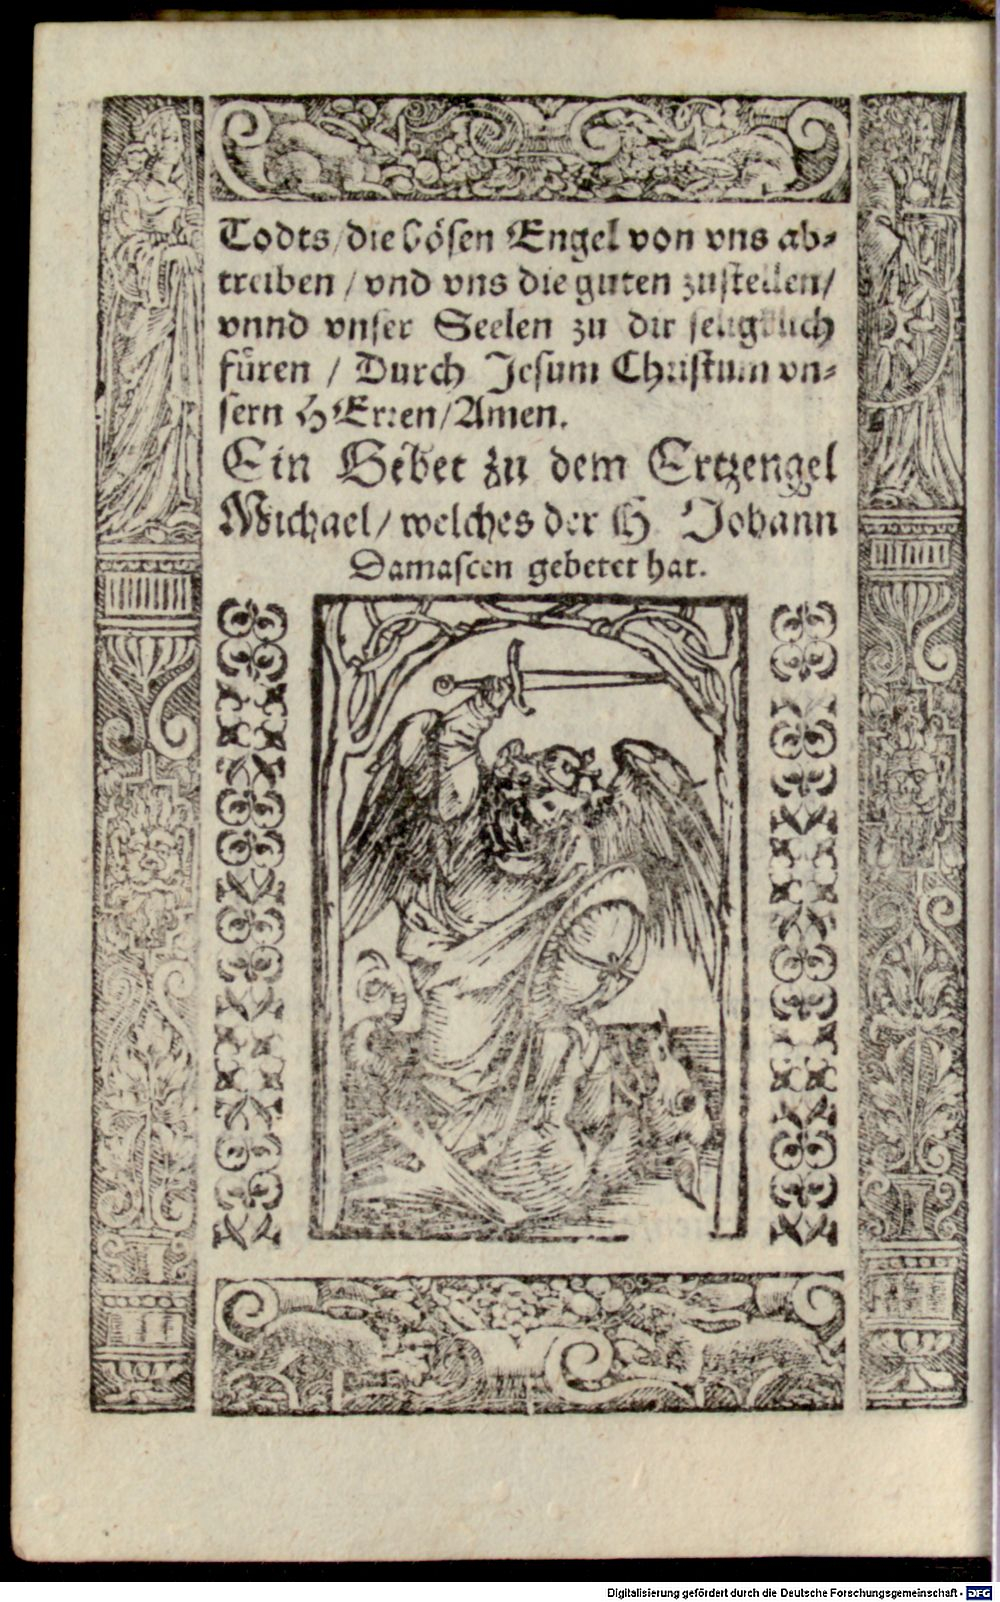 Todts/die bösen Engel von vns ab⸗
treiben / vnd vns die guten zustellen/
vnnd vnser Seelen zu dir seligklich
füren / Durch Jesum Christum vn⸗
sern HErren/Amen.
Ein Gebet zu dem Ertzengel
Michael/ welches der H. Johann
Damascen gebetet hat.
Digitalisierung gefördert durch die Deutsche Forschungsgemeinschaft - DFG